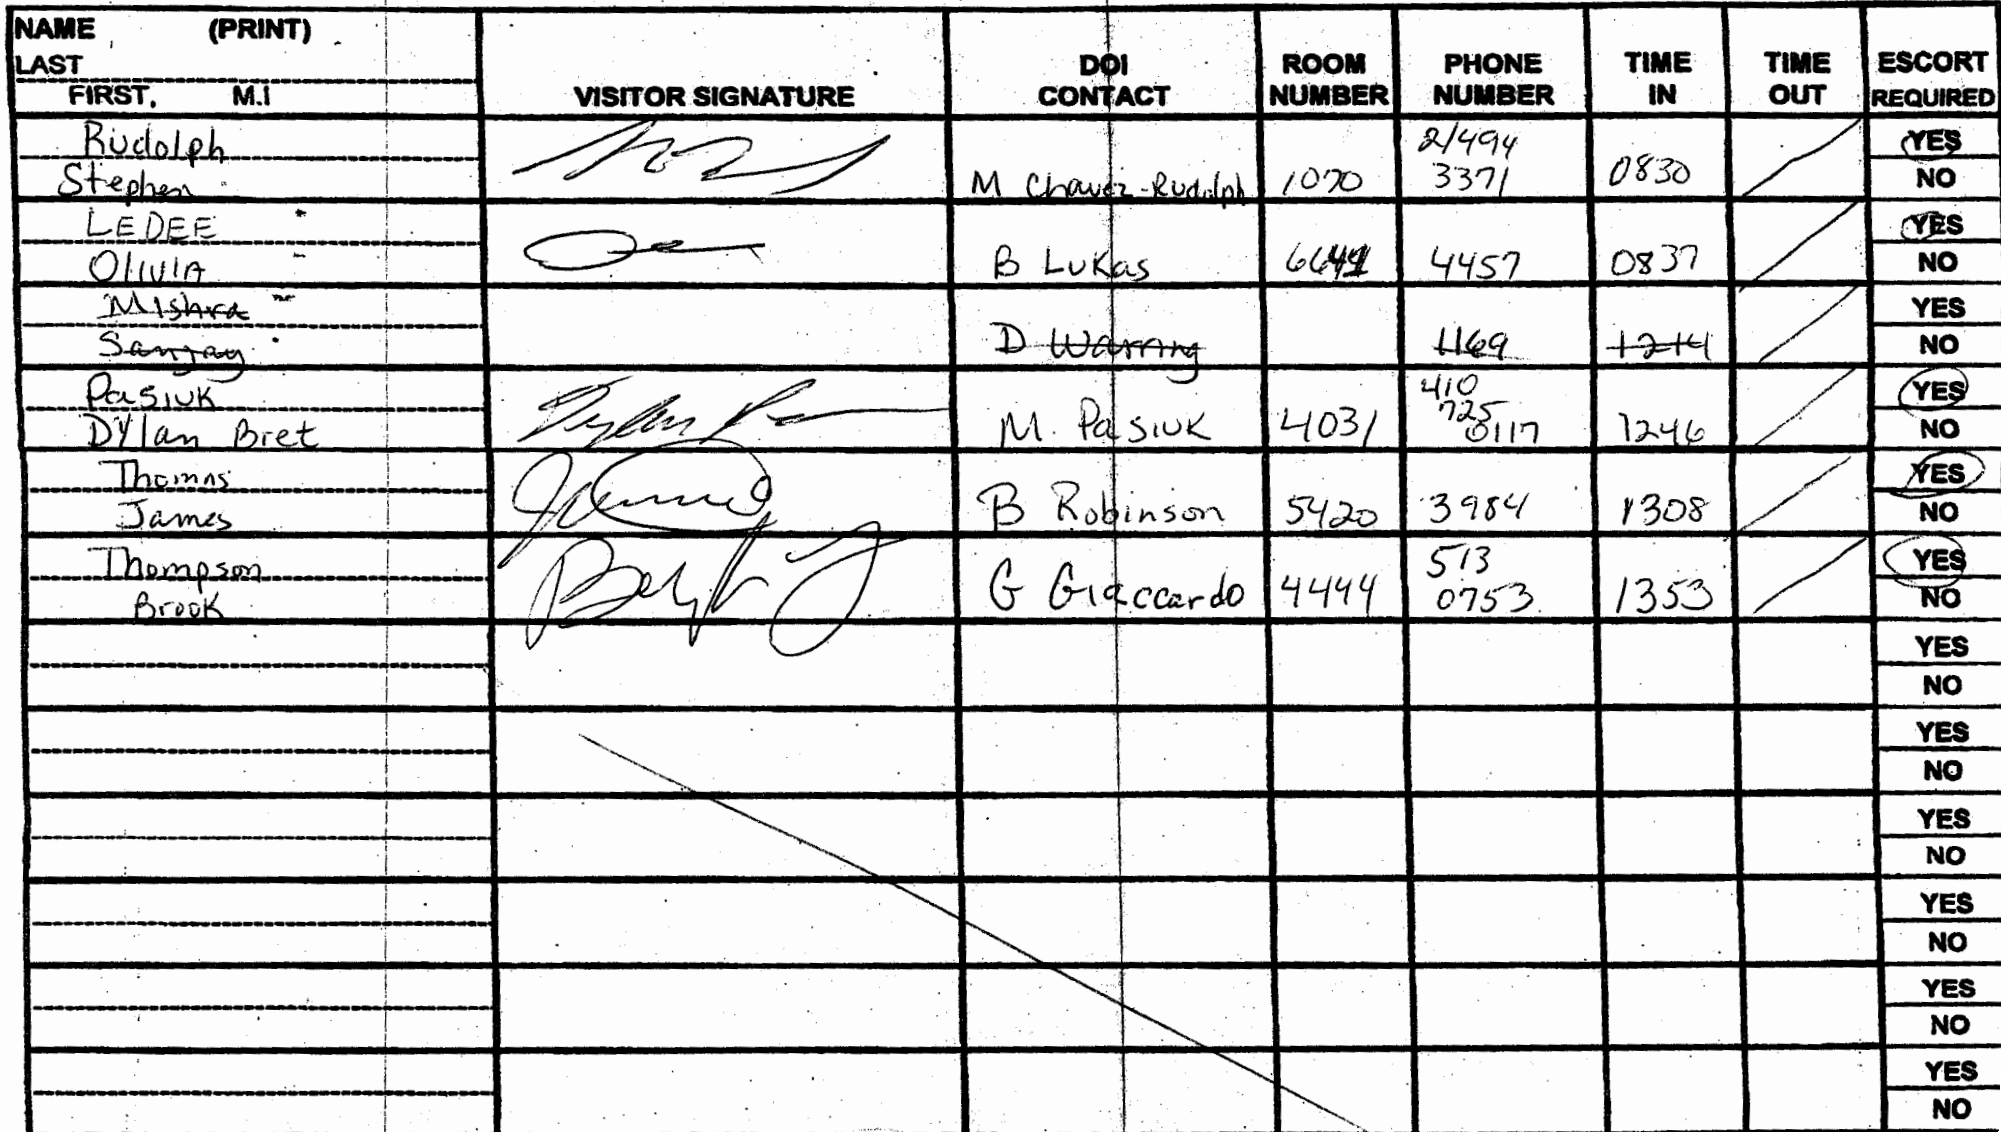 NAME (PRINT)
LAST
FIRST, M.I
VISITOR SIGNATURE
DOI CONTACT
ROOM NUMBER
PHONE NUMBER
TIME IN
TIME OUT
ESCORT REQUIRED
Rudolph
Stephen
M Chavez-Rudolph
1070
2/494
3371
0830
YES
NO
LEDEE
OLIVIA
B Lukas
4457
0837
YES
NO
Mishra
Sanjay
D
1169
1214
YES
NO
Pasiuk
Dylan Bret
M. Pasiuk
4031
410
725
0117
1246
YES
NO
Thomas
James
B Robinson
5420
3984
1308
YES
NO
Thompson
Brook
G Giaccardo
4444
513
0753
1353
YES
NO
YES
NO
YES
NO
YES
NO
YES
NO
YES
NO
YES
NO